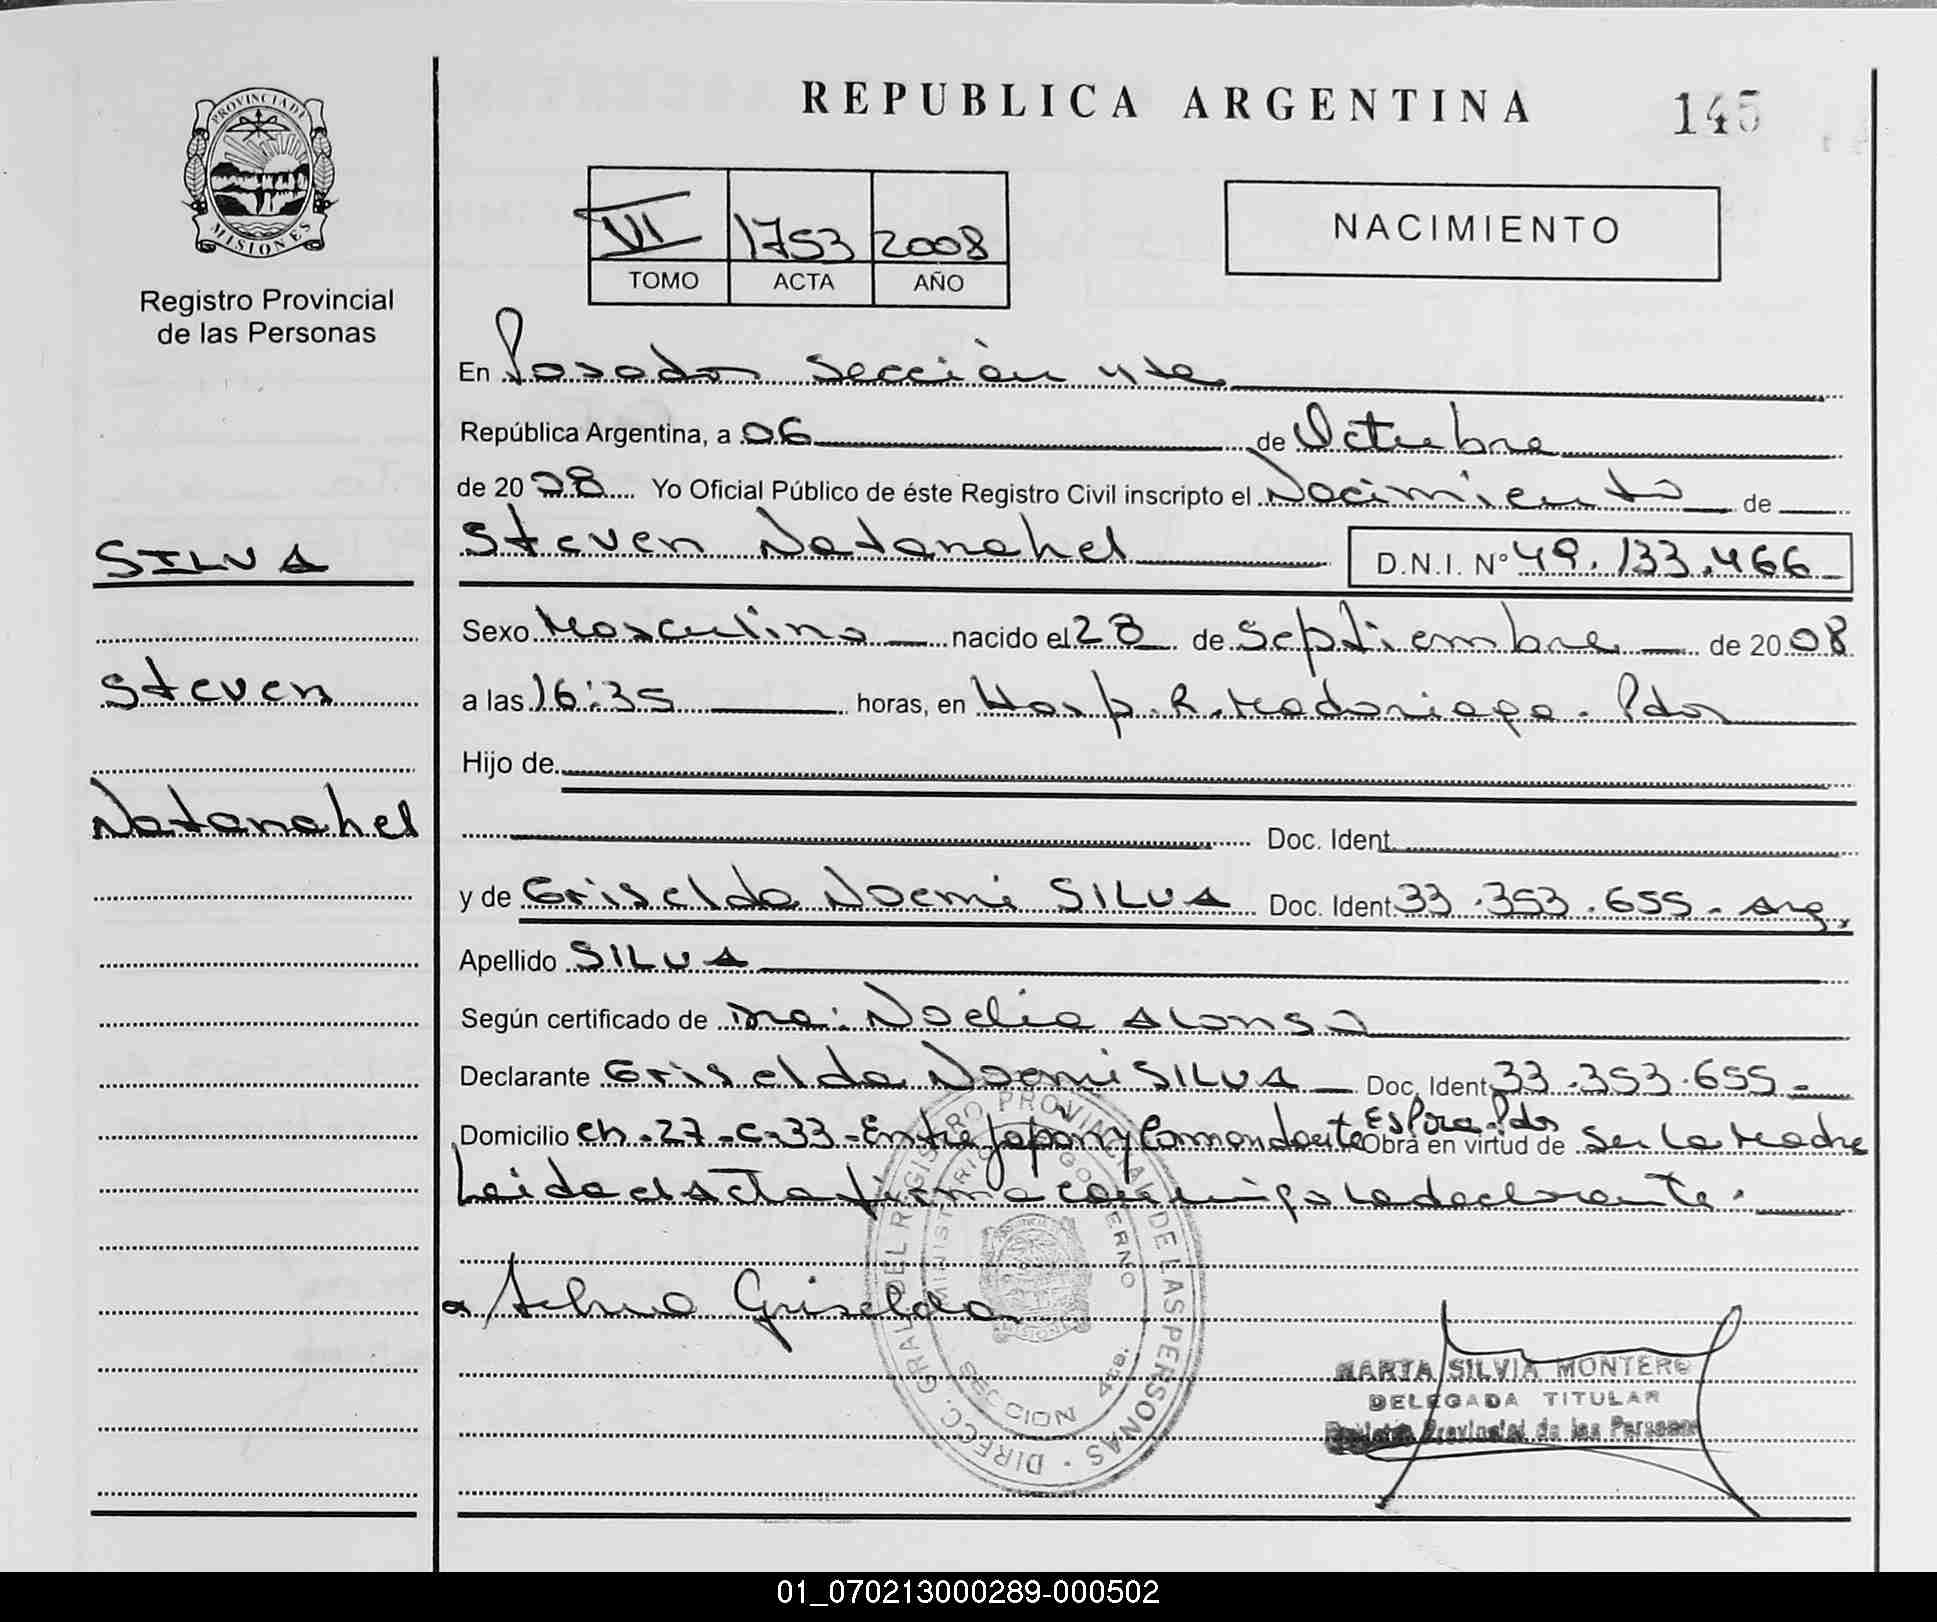 REPUBLICA ARGENTINA
145
PROVINCIA DE
MISIONES
Registro Provincial
de las Personas
VI 1753 2008
TOMO ACTA AÑO
NACIMIENTO
En Posadas Sección 4ta
República Argentina, a 06 de Octubre
de 2008 Yo Oficial Público de éste Registro Civil inscripto el Nacimiento de
SILVA
Steven Natanahel D.N.I. N° 49.133.466
Sexo Masculino nacido el 28 de Septiembre de 2008
Steven
a las 16:35 horas, en Hosp. R. Madariaga. Pdas
Hijo de
Natanahel
Doc. Ident.
y de Griselda Noemi SILVA Doc. Ident. 33.353.655 - Arg.
Apellido SILVA
Según certificado de Dra: Noelia Alonso
Declarante Griselda Noemi SILVA Doc. Ident. 33.353.655 -
Domicilio Ch. 27 - C. 33 - Entre Japon y Comandante Espora. Pdas Obra en virtud de Ser La Madre
Leida el Acta firma conmigo la declarante.
Silva Griselda
DIREC. GRAL. DEL REGISTRO PROVINCIAL DE LAS PERSONAS
MINISTERIO GOBIERNO
SECCION 4ta.
MARTA SILVIA MONTERO
DELEGADA TITULAR
Registro Provincial de las Personas
01_070213000289-000502